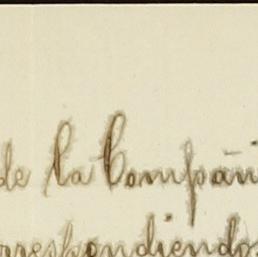 de la Compañi
rrespondiendo